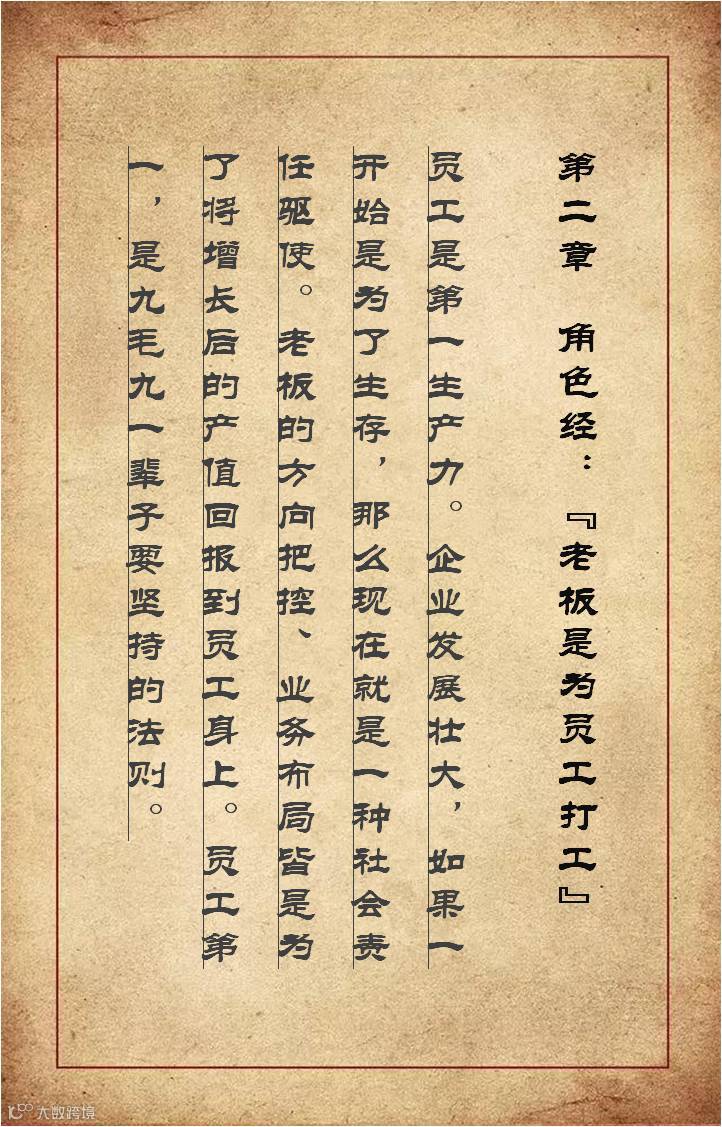 第二章　角色经：『老板是为员工打工』
员工是第一生产力。企业发展壮大，如果一
开始是为了生存，那么现在就是一种社会责
任驱使。老板的方向把控、业务布局皆是为
了将增长后的产值回报到员工身上。员工第
一，是九毛九一辈子要坚持的法则。
大数跨境